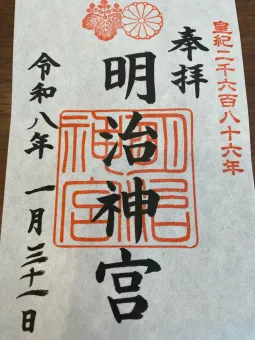 皇紀二千六百八十六年
奉拝
明治神宮
令和八年 一月三十一日
明治神宮